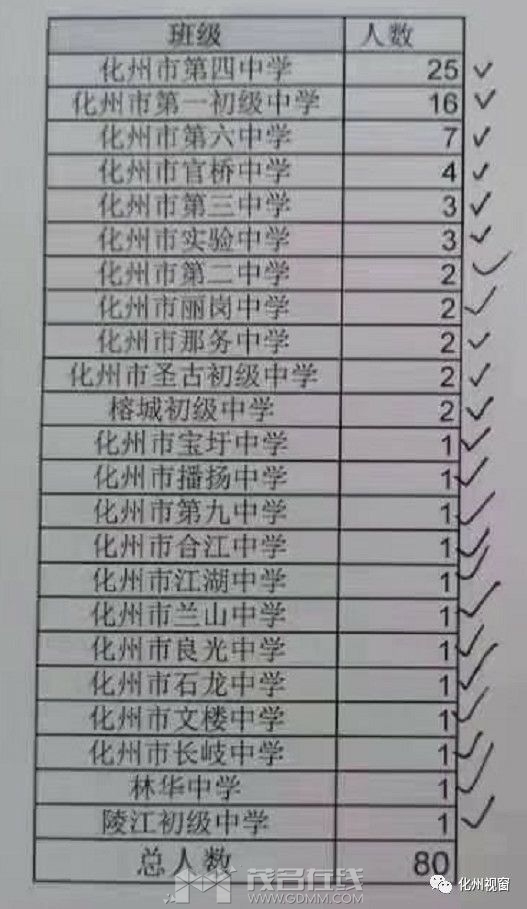 班级 人数
化州市第四中学 25
化州市第一初级中学 16
化州市第六中学 7
化州市官桥中学 4
化州市第三中学 3
化州市实验中学 3
化州市第二中学 2
化州市丽岗中学 2
化州市那务中学 2
化州市圣古初级中学 2
榕城初级中学 2
化州市宝圩中学 1
化州市播扬中学 1
化州市第九中学 1
化州市合江中学 1
化州市江湖中学 1
化州市兰山中学 1
化州市良光中学 1
化州市石龙中学 1
化州市文楼中学 1
化州市长岐中学 1
林华中学 1
陵江初级中学 1
总人数 80
茂名在线
WWW.GDMM.COM
化州视窗